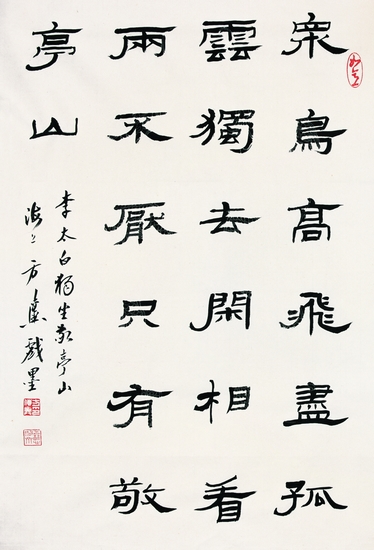 衆鳥高飛盡孤
雲獨去閑相看
兩不厭只有敬
亭山
李太白獨坐敬亭山
海上方戲墨